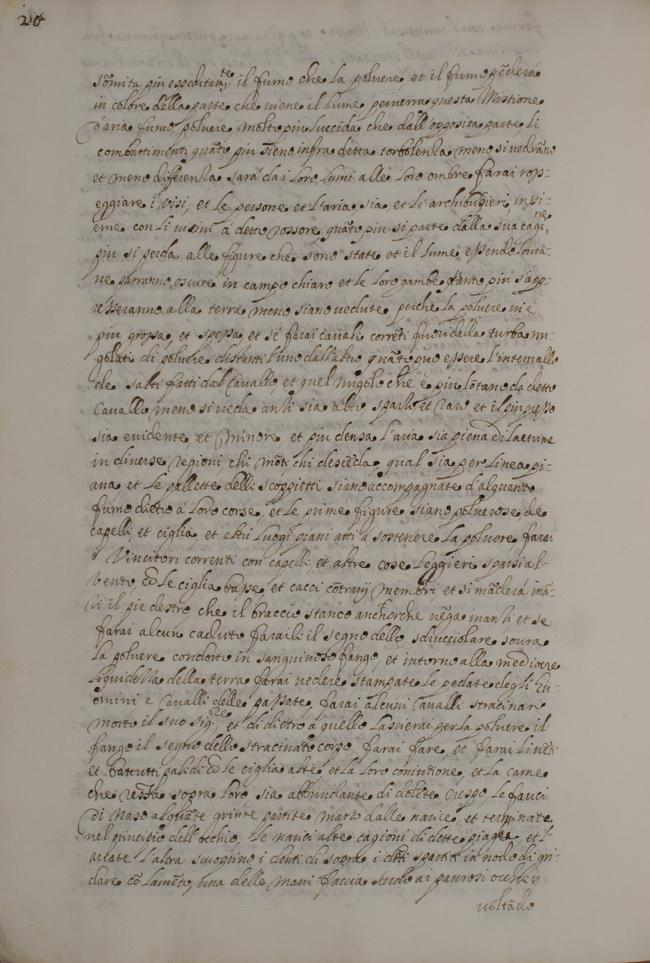 20
sõmita piu espeditam.te il fumo che la poluere, et il fumo pẽderá
in colore della parte che uiene il lume, peruerra questa Mistione
d'aria fumo, poluere molto piu luccida che dall'opposita parte li
combattimenti quãto piu sieno infra detta torbolenza meno si uedrãno
et meno differenza sará da i loro lumi alle loro ombre farai ros-
eggiare i uisi, et le persone et l'aria sia, et li archibugieri, insi-
eme con li uicini a deto rossore quãto piu si parte dalla sua cagi.ne
piu si perda alle figure che sono state et il lume essendo lonta-
ne parranno oscure in campo chiaro et le loro gambe quanto piu s'app-
resseranno alla terra meno siano uedute, perche la poluere ui é
piu grossa, et spessa, et sé farai caualli correti fuori della turba nu-
golati di poluere distanti l'uno dall'altro quãto puo essere l'interuallo
de salti fatti dal Cauallo, et quel nugolo che è piu lõtano da detto
Cauallo meno si ueda anzi sia alto sparso et raro et il piu presso
sia euidente, et minore et piu densa l'aria sia piena di saettume
in diuerse regioni chi mõti chi desiẽda, qual sia per linea pi-
ana, et le pallette delli scoppietti siano accompagnate d'alquanto
fumo dietro á loro corse, et le prime figure siano poluerose de
capelli, et ciglia, et altri luogi piani atti a sostenere la poluere, farai
i Vincitori correnti con capelli, et altre cose leggieri sparsi al
uento, cõ le ciglia basse, et cacci cõtrarij membri et si mãderá inã-
zi il pie destro che il braccio stanco anchorche uẽga inanzi et se
farai alcun caduto faraili il segno dello sdrucciolare soura
la poluere condotto in sanguinoso fango, et intorno alla mediocre
liquidezza della terra farai uedere stampate le pedate degli hu-
omini e Caualli delle passate, farai alcuni Caualli stracinar
morto il suo Sig.re et di dietro á quello lascierai per la poluere il
fango il segno dello stracinato corpo farai fare, et farai li uiti
et battutti palidi cõ le ciglia alte et la loro coniutione, et la carne
che resta sopra loro sia abbundante di dolẽte crespe, le fauci
di naso alquãte grinze partite marzo dalle narice, et terminate
nel principio dell'occhio, le narici alte cagioni di dette pieghe, et l'
arcate labra scuoprino i denti di sopra i dẽti spartiti in modo di gri-
dare cõ lamẽto, una delle mani faccia scudo ai paurosi occhi
uoltãdo